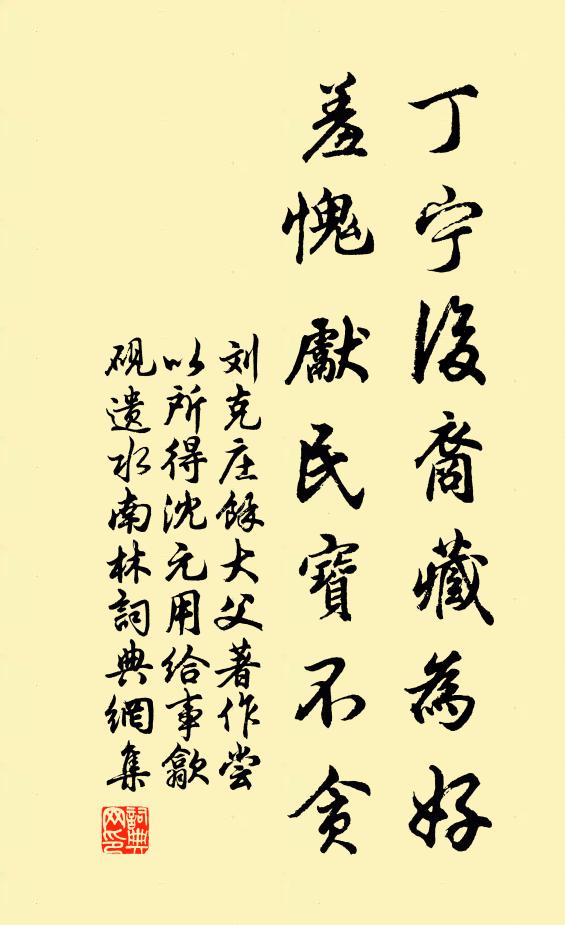 丁宁後裔藏為好
羞愧獻民寶不貪
刘克庄餘大父著作尝
以所得沈元用给事歙
砚遗水南林詞典網集
詞典網印